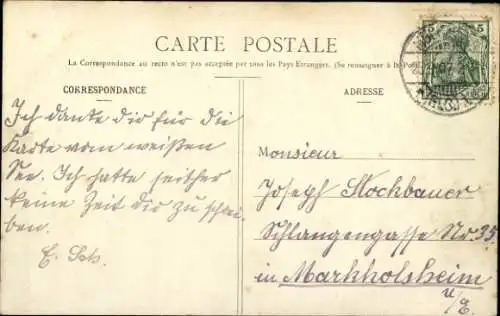 CARTE POSTALE
La Correspondance au recto n'est pas acceptée par tous les Pays Etrangers. (Se renseigner à la Poste)
CORRESPONDANCE
ADRESSE
5 5
Ich danke dir für die
Karte vom weißen
See. Ich hatte seither
keine Zeit dir zu schrei-
ben.
E. Sch.
Monsieur
Joseph Stockbauer
Schlangengasse Nr. 35
in Markholsheim
u/E.